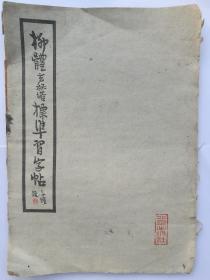 柳體玄秘塔標準習字帖